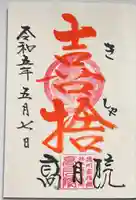 き
しゃ
喜捨
令和五年五月七日
高月院